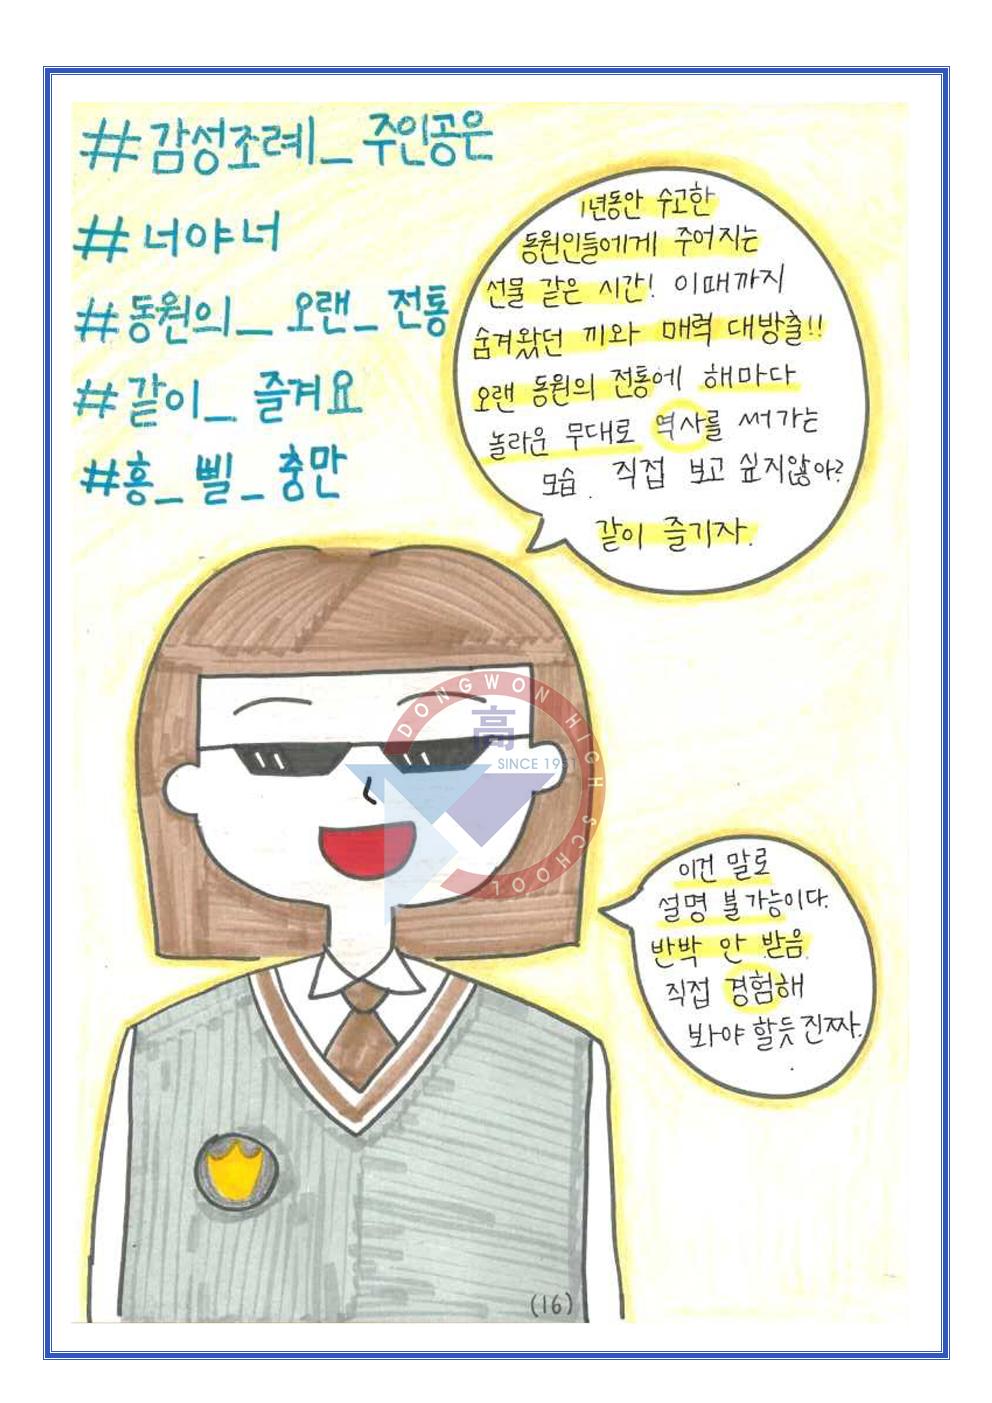 #감성조례_주인공은
#너야너
#동원의_오랜_전통
#같이_즐겨요
#흥_삘_충만
1년동안 수고한
동원인들에게 주어지는
선물 같은 시간! 이때까지
숨겨왔던 끼와 매력 대방출!!
오랜 동원의 전통에 해마다
놀라운 무대로 역사를 써가는
모습. 직접 보고 싶지않아?
같이 즐기자.
DONGWON HIGH SCHOOL
高
SINCE 1951
이건 말로
설명 불가능이다.
반박 안 받음.
직접 경험해
봐야 할듯 진짜.
(16)